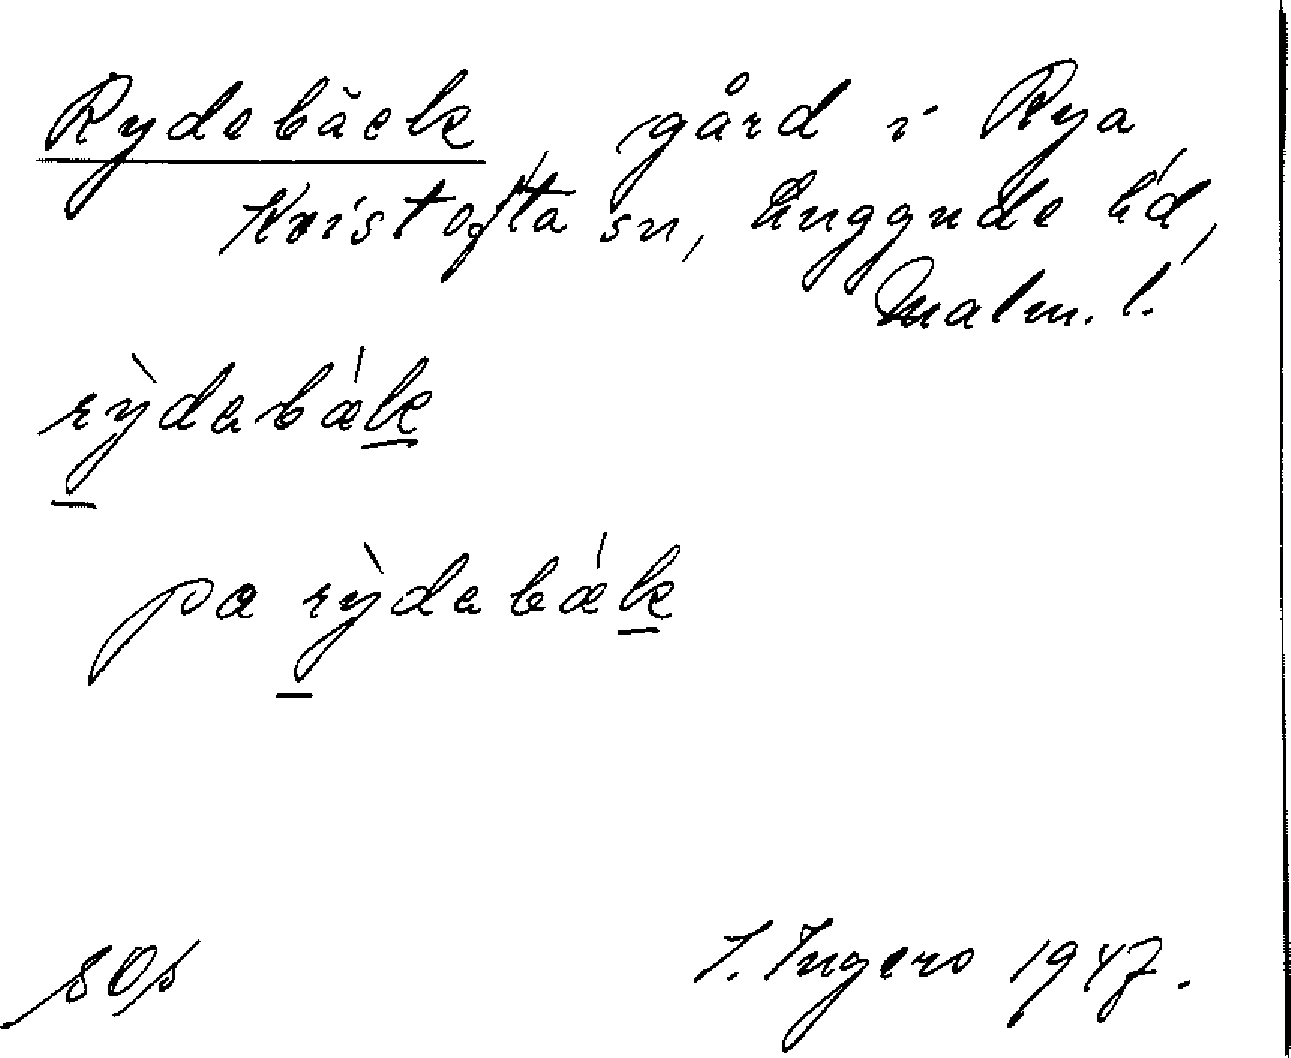 Rydebäck gård i Rya
Kvistofta sn, Luggude hd,
Malm. l.
rỳdabǽk
pa rỳdabǽk
I. Ingers 1947.